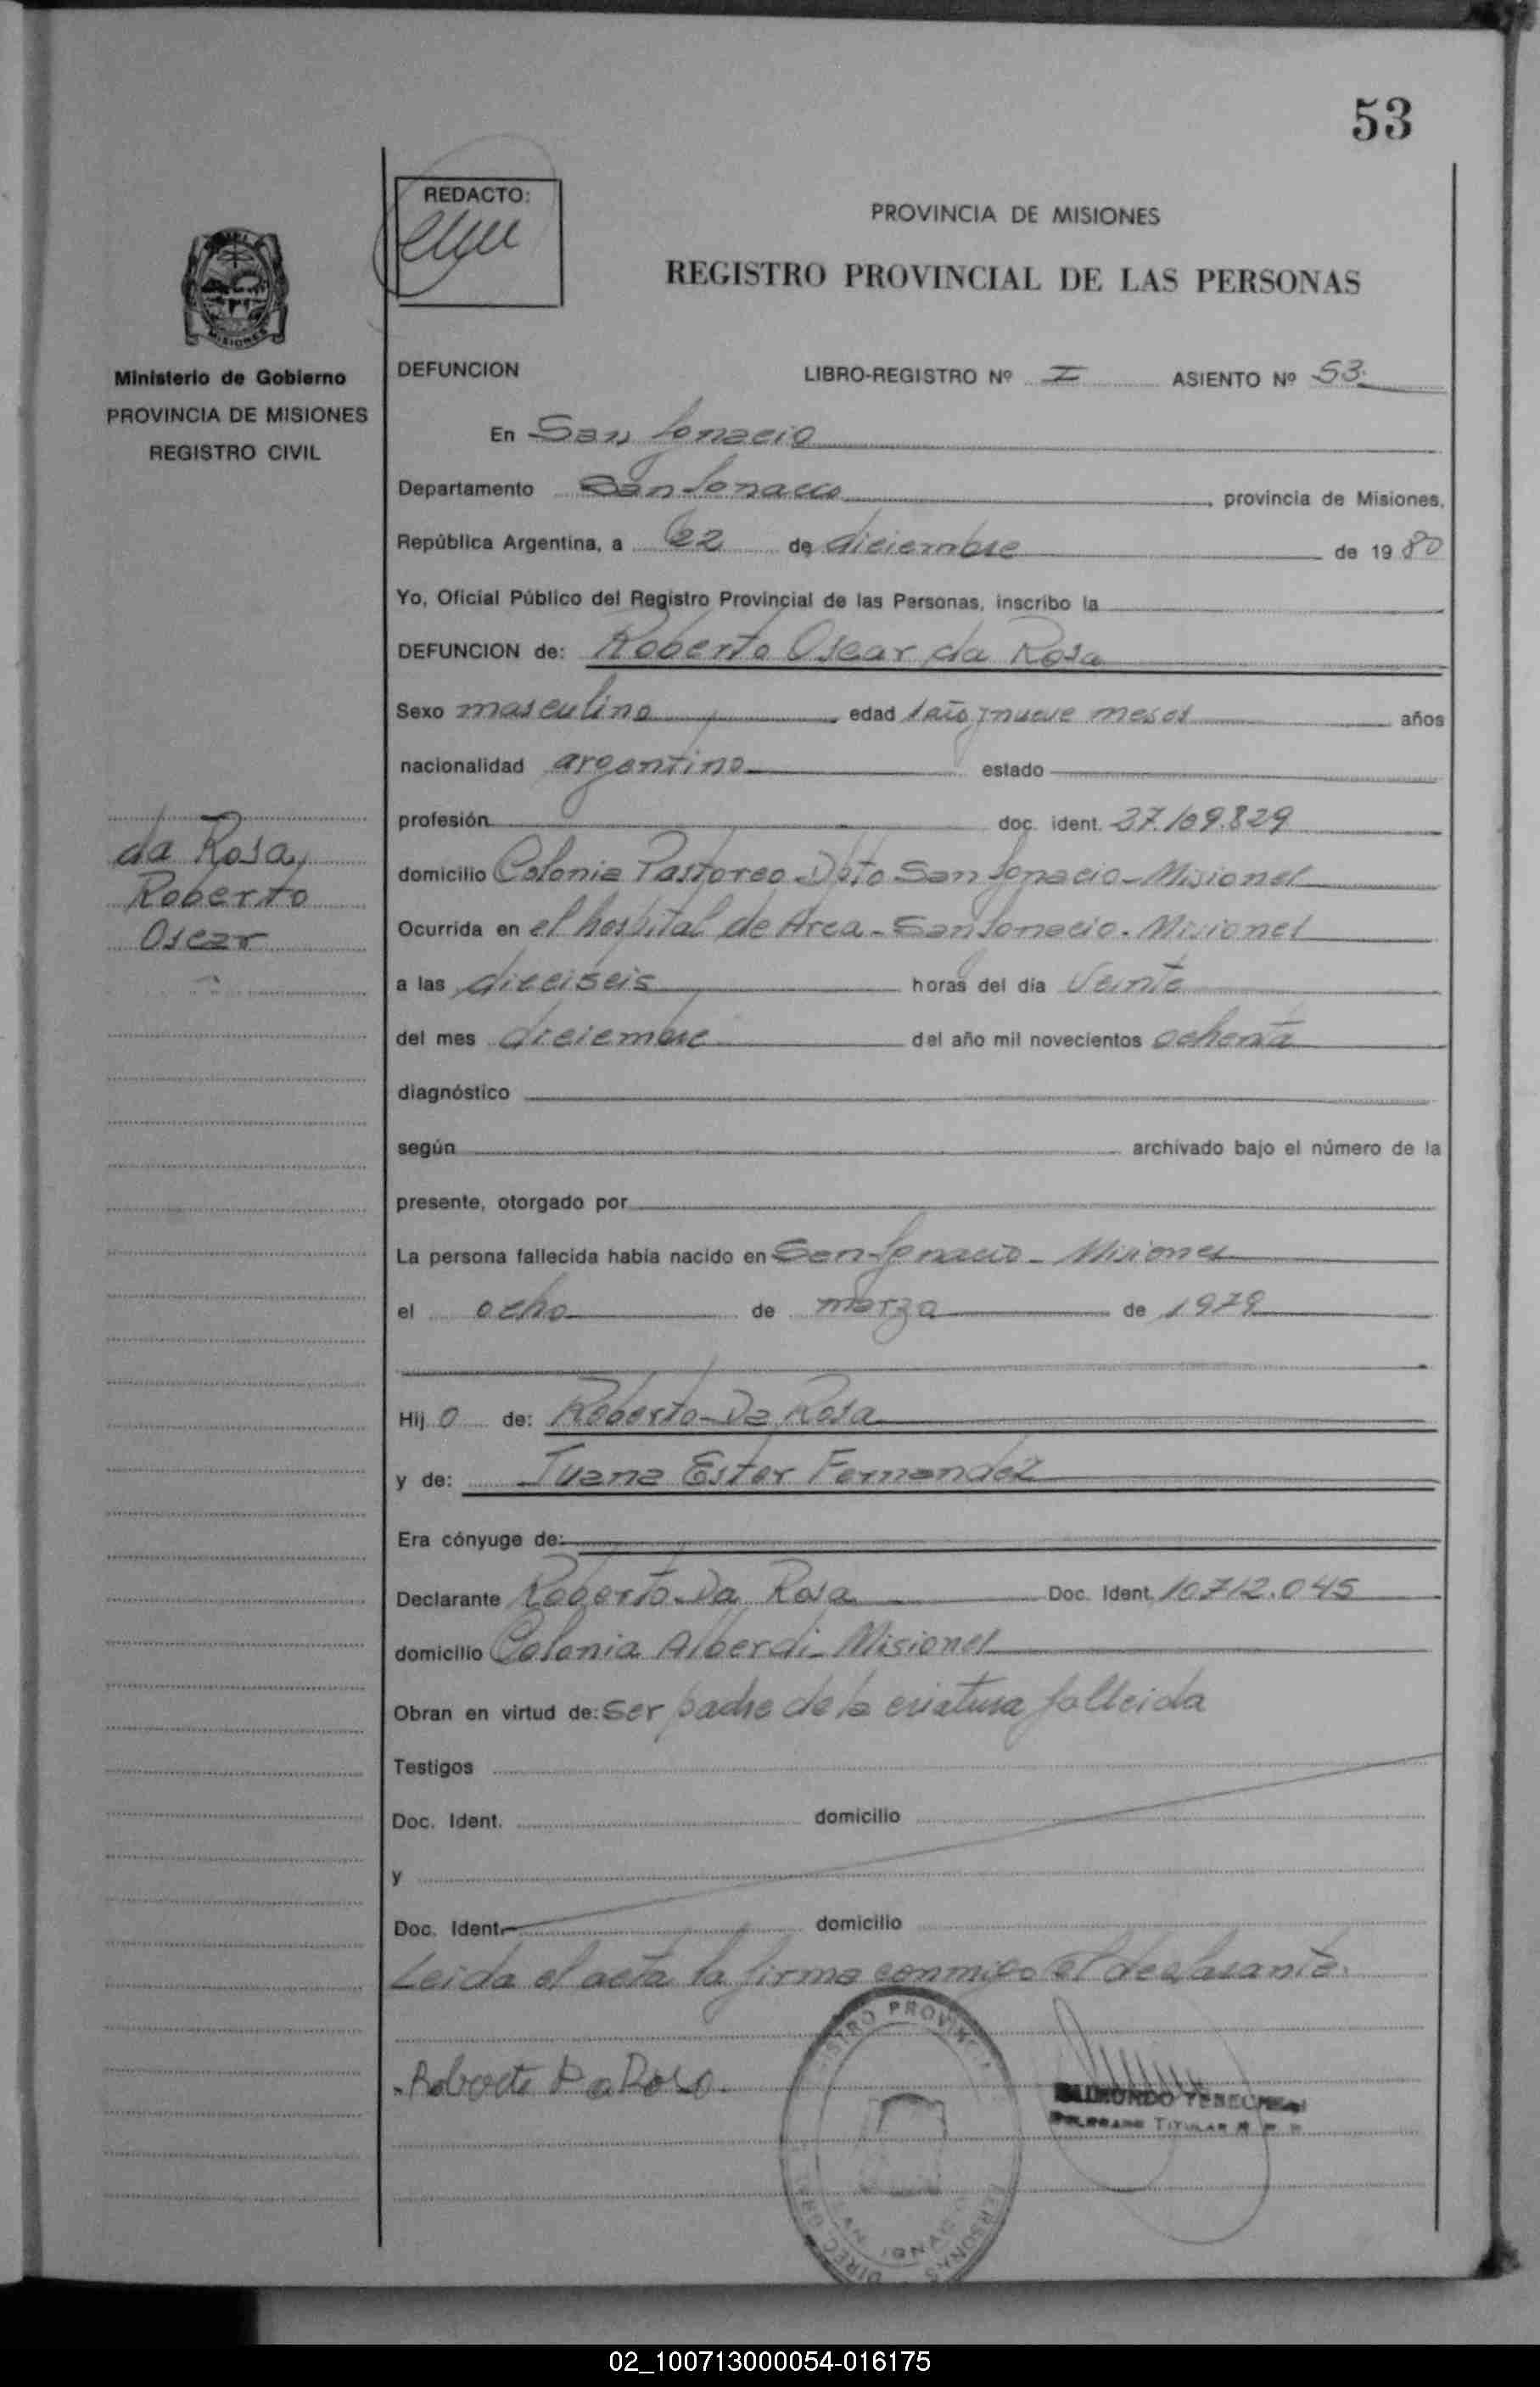 53
REDACTO:
PROVINCIA DE MISIONES
REGISTRO PROVINCIAL DE LAS PERSONAS
MISIONES
Ministerio de Gobierno
PROVINCIA DE MISIONES
REGISTRO CIVIL
da Rosa,
Roberto
Oscar
DEFUNCION LIBRO-REGISTRO Nº I ASIENTO Nº 53.
En San Ignacio
Departamento San Ignacio, provincia de Misiones,
República Argentina, a 22 de diciembre de 1980
Yo, Oficial Público del Registro Provincial de las Personas, inscribo la
DEFUNCION de: Roberto Oscar da Rosa
Sexo masculino edad 1 año y nueve meses años
nacionalidad argentino estado
profesión doc. ident. 27.109.829
domicilio Colonia Pastoreo - Dpto San Ignacio - Misiones
Ocurrida en el hospital de Area - San Ignacio - Misiones
a las dieciseis horas del día veinte
del mes diciembre del año mil novecientos ochenta
diagnóstico
según archivado bajo el número de la
presente, otorgado por
La persona fallecida había nacido en San Ignacio - Misiones
el ocho de marzo de 1979
Hijo de: Roberto Da Rosa
y de: Juana Ester Fernandez
Era cónyuge de:
Declarante Roberto Da Rosa Doc. Ident. 10.712.045
domicilio Colonia Alberdi - Misiones
Obran en virtud de: ser padre de la criatura fallecida
Testigos
Doc. Ident. domicilio
y
Doc. Ident. domicilio
Leida el acta la firma conmigo el declarante.
Roberto Da Rosa
PERSONAS
SAN IGNACIO
TITULAR
02_100713000054-016175